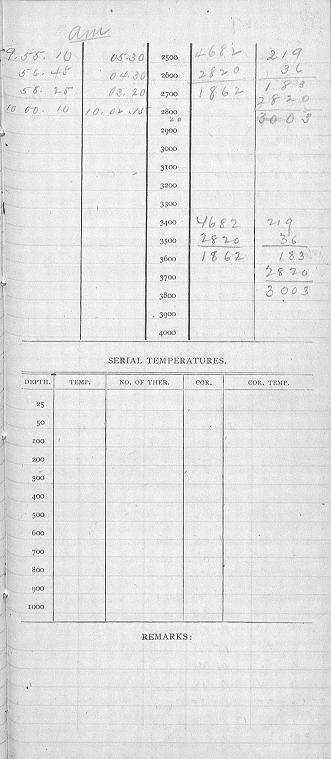 am
9. 55. 10 05.30 2500 4682 219
56. 45 04.30 2600 2820 36
58. 25 03.20 2700 1862 183
2820
10 00. 10 10. 02. 15 2800 3003
20
2900
3000
3100
3200
3300
3400 4682 219
3500 2820 36
3600 1862 183
3700 2820
3800 3003
3900
4000
SERIAL TEMPERATURES.
DEPTH. TEMP. NO. OF THER. COR. COR. TEMP.
25
50
100
200
300
400
500
600
700
800
900
1000
REMARKS: